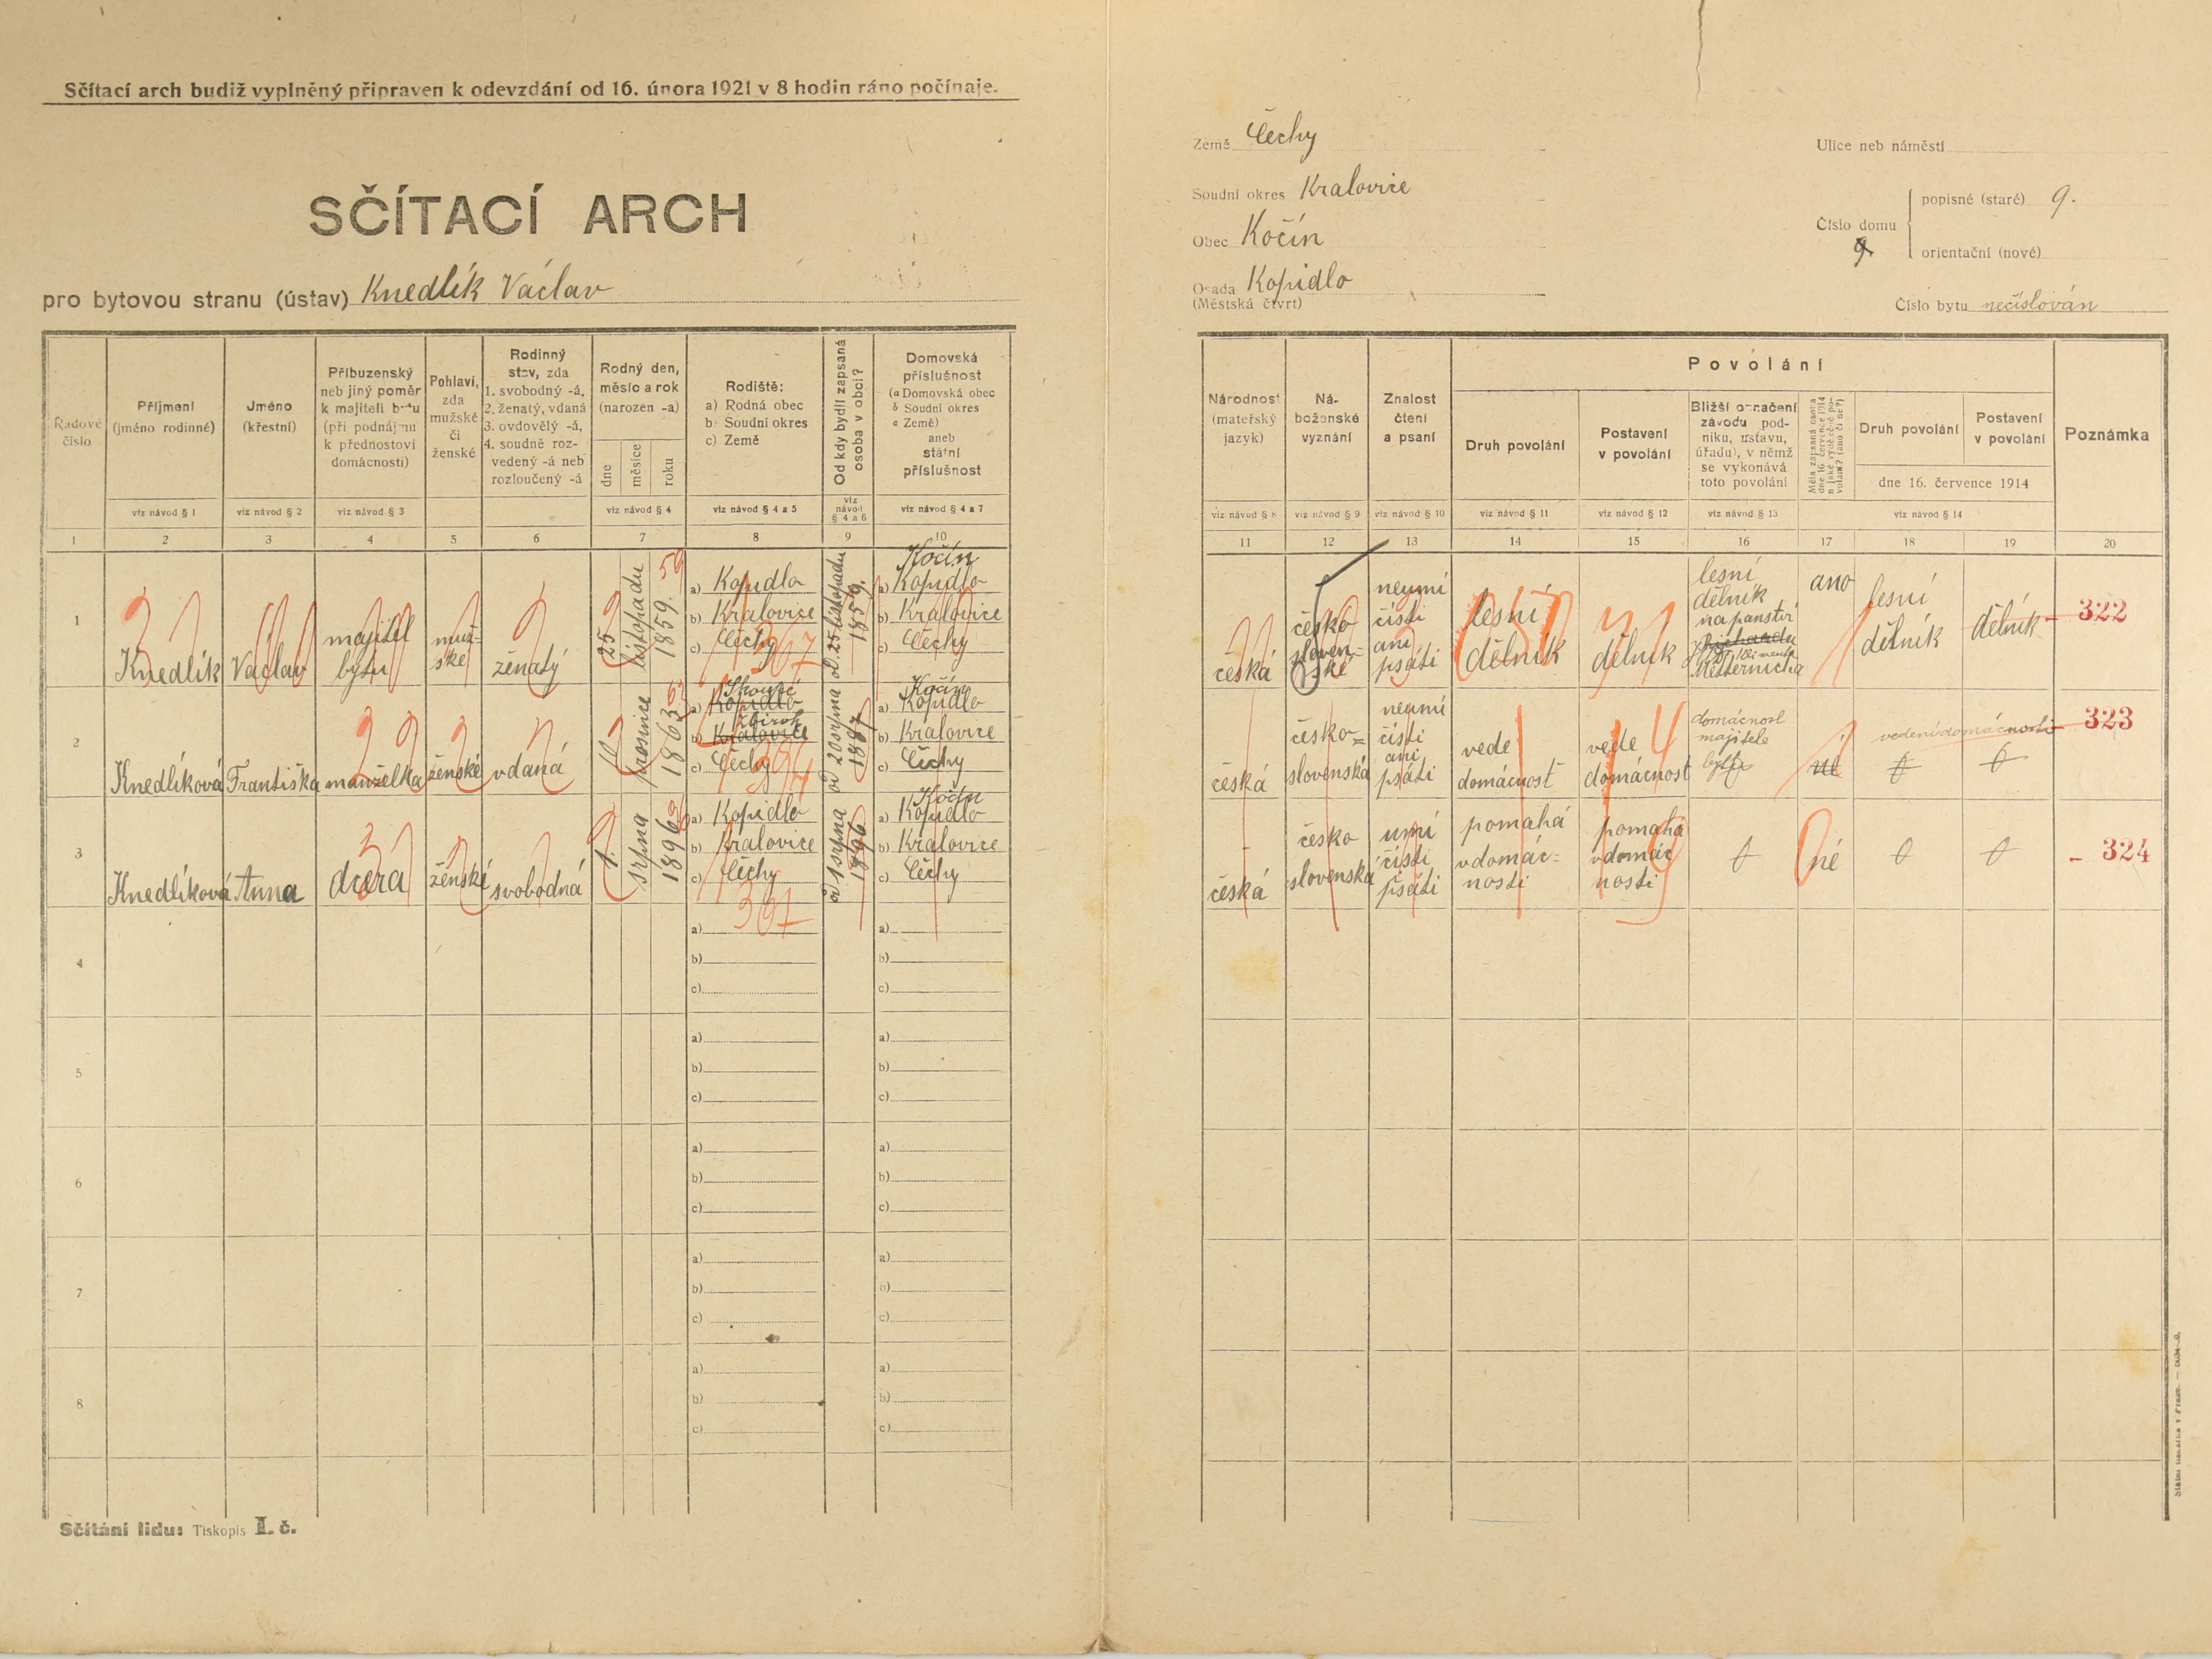 Sčítací arch budiž vyplněný připraven k odevzdání od 16. února 1921 v 8 hodin ráno počínaje.
SČÍTACÍ ARCH
pro bytovou stranu (ústav) Knedlík Václav
Země Čechy
Soudní okres Kralovice
Obec Kočín
Osada Kopidlo
(Městská čtvrt)
Ulice neb náměstí
Číslo domu
9
popisné (staré) 9.
orientační (nové)
Číslo bytu nečíslován
Řadové číslo
Příjmení (jméno rodinné)
Jméno (křestní)
Příbuzenský neb jiný poměr k majiteli bytu (při podnájmu k přednostovi domácnosti)
Pohlaví, zda mužské či ženské
Rodinný stav, zda 1. svobodný -á, 2. ženatý, vdaná 3. ovdovělý -á, 4. soudně rozvedený -á neb rozloučený -á
Rodný den, měsíc a rok (narozen -a)
dne
měsíce
roku
Rodiště:
a) Rodná obec
b) Soudní okres
c) Země
Od kdy bydlí zapsaná osoba v obci?
Domovská příslušnost
(a Domovská obec
b Soudní okres
c Země)
aneb státní příslušnost
viz návod § 1
viz návod § 2
viz návod § 3
viz návod § 4
viz návod § 4 a 5
viz návod § 4 a 6
viz návod § 4 a 7
1 2 3 4 5 6 7 8 9 10
Národnost (mateřský jazyk)
Náboženské vyznání
Znalost čtení a psaní
Povolání
Druh povolání
Postavení v povolání
Bližší označení závodu podniku, ústavu, úřadu), v němž se vykonává toto povolání
Měla zapsaná osoba dne 16. července 1914 n jaké výdělečné povolání? (ano či ne?)
Druh povolání
Postavení v povolání
dne 16. července 1914
Poznámka
viz návod § 8
viz návod § 9
viz návod § 10
viz návod § 11
viz návod § 12
viz návod § 13
viz návod § 14
11 12 13 14 15 16 17 18 19 20
1
Knedlík
Václav
majitel bytu
mužské
ženatý
25
listopadu
1859.
59
a) Kopidlo
b) Kralovice
c) Čechy
367
od 25 listopadu 1859.
Kočín
a) Kopidlo
b) Kralovice
c) Čechy
česká
česko slovenské
neumí čísti ani psáti
lesní dělník
dělník
lesní dělník na panství
Metternicha
ano
lesní dělník
dělník
322
2
Knedlíková
Františka
manželka
ženské
vdaná
prosince
1863
a) Kopidlo
Zbiroh
b) Kralovice
c) Čechy
od 20 srpna 1887
Kočín
a) Kopidlo
b) Kralovice
c) Čechy
česká
česko=slovenská
neumí čísti ani psáti
vede domácnost
vede domácnost
domácnost majitele bytu
ne
vedení domácnosti
323
3
Knedlíková
Anna
dcera
ženské
svobodná
1.
srpna
1896
96
a) Kopidlo
b) Kralovice
c) Čechy
367
od 1 srpna 1896
Kočín
a) Kopidlo
b) Kralovice
c) Čechy
česká
česko slovenská
umí čísti psáti
pomahá v domácnosti
pomahá v domácnosti
né
324
4
a)
b)
c)
a)
b)
c)
5
a)
b)
c)
a)
b)
c)
6
a)
b)
c)
a)
b)
c)
7
a)
b)
c)
a)
b)
c)
8
a)
b)
c)
a)
b)
c)
Sčítání lidu: Tiskopis I. č.